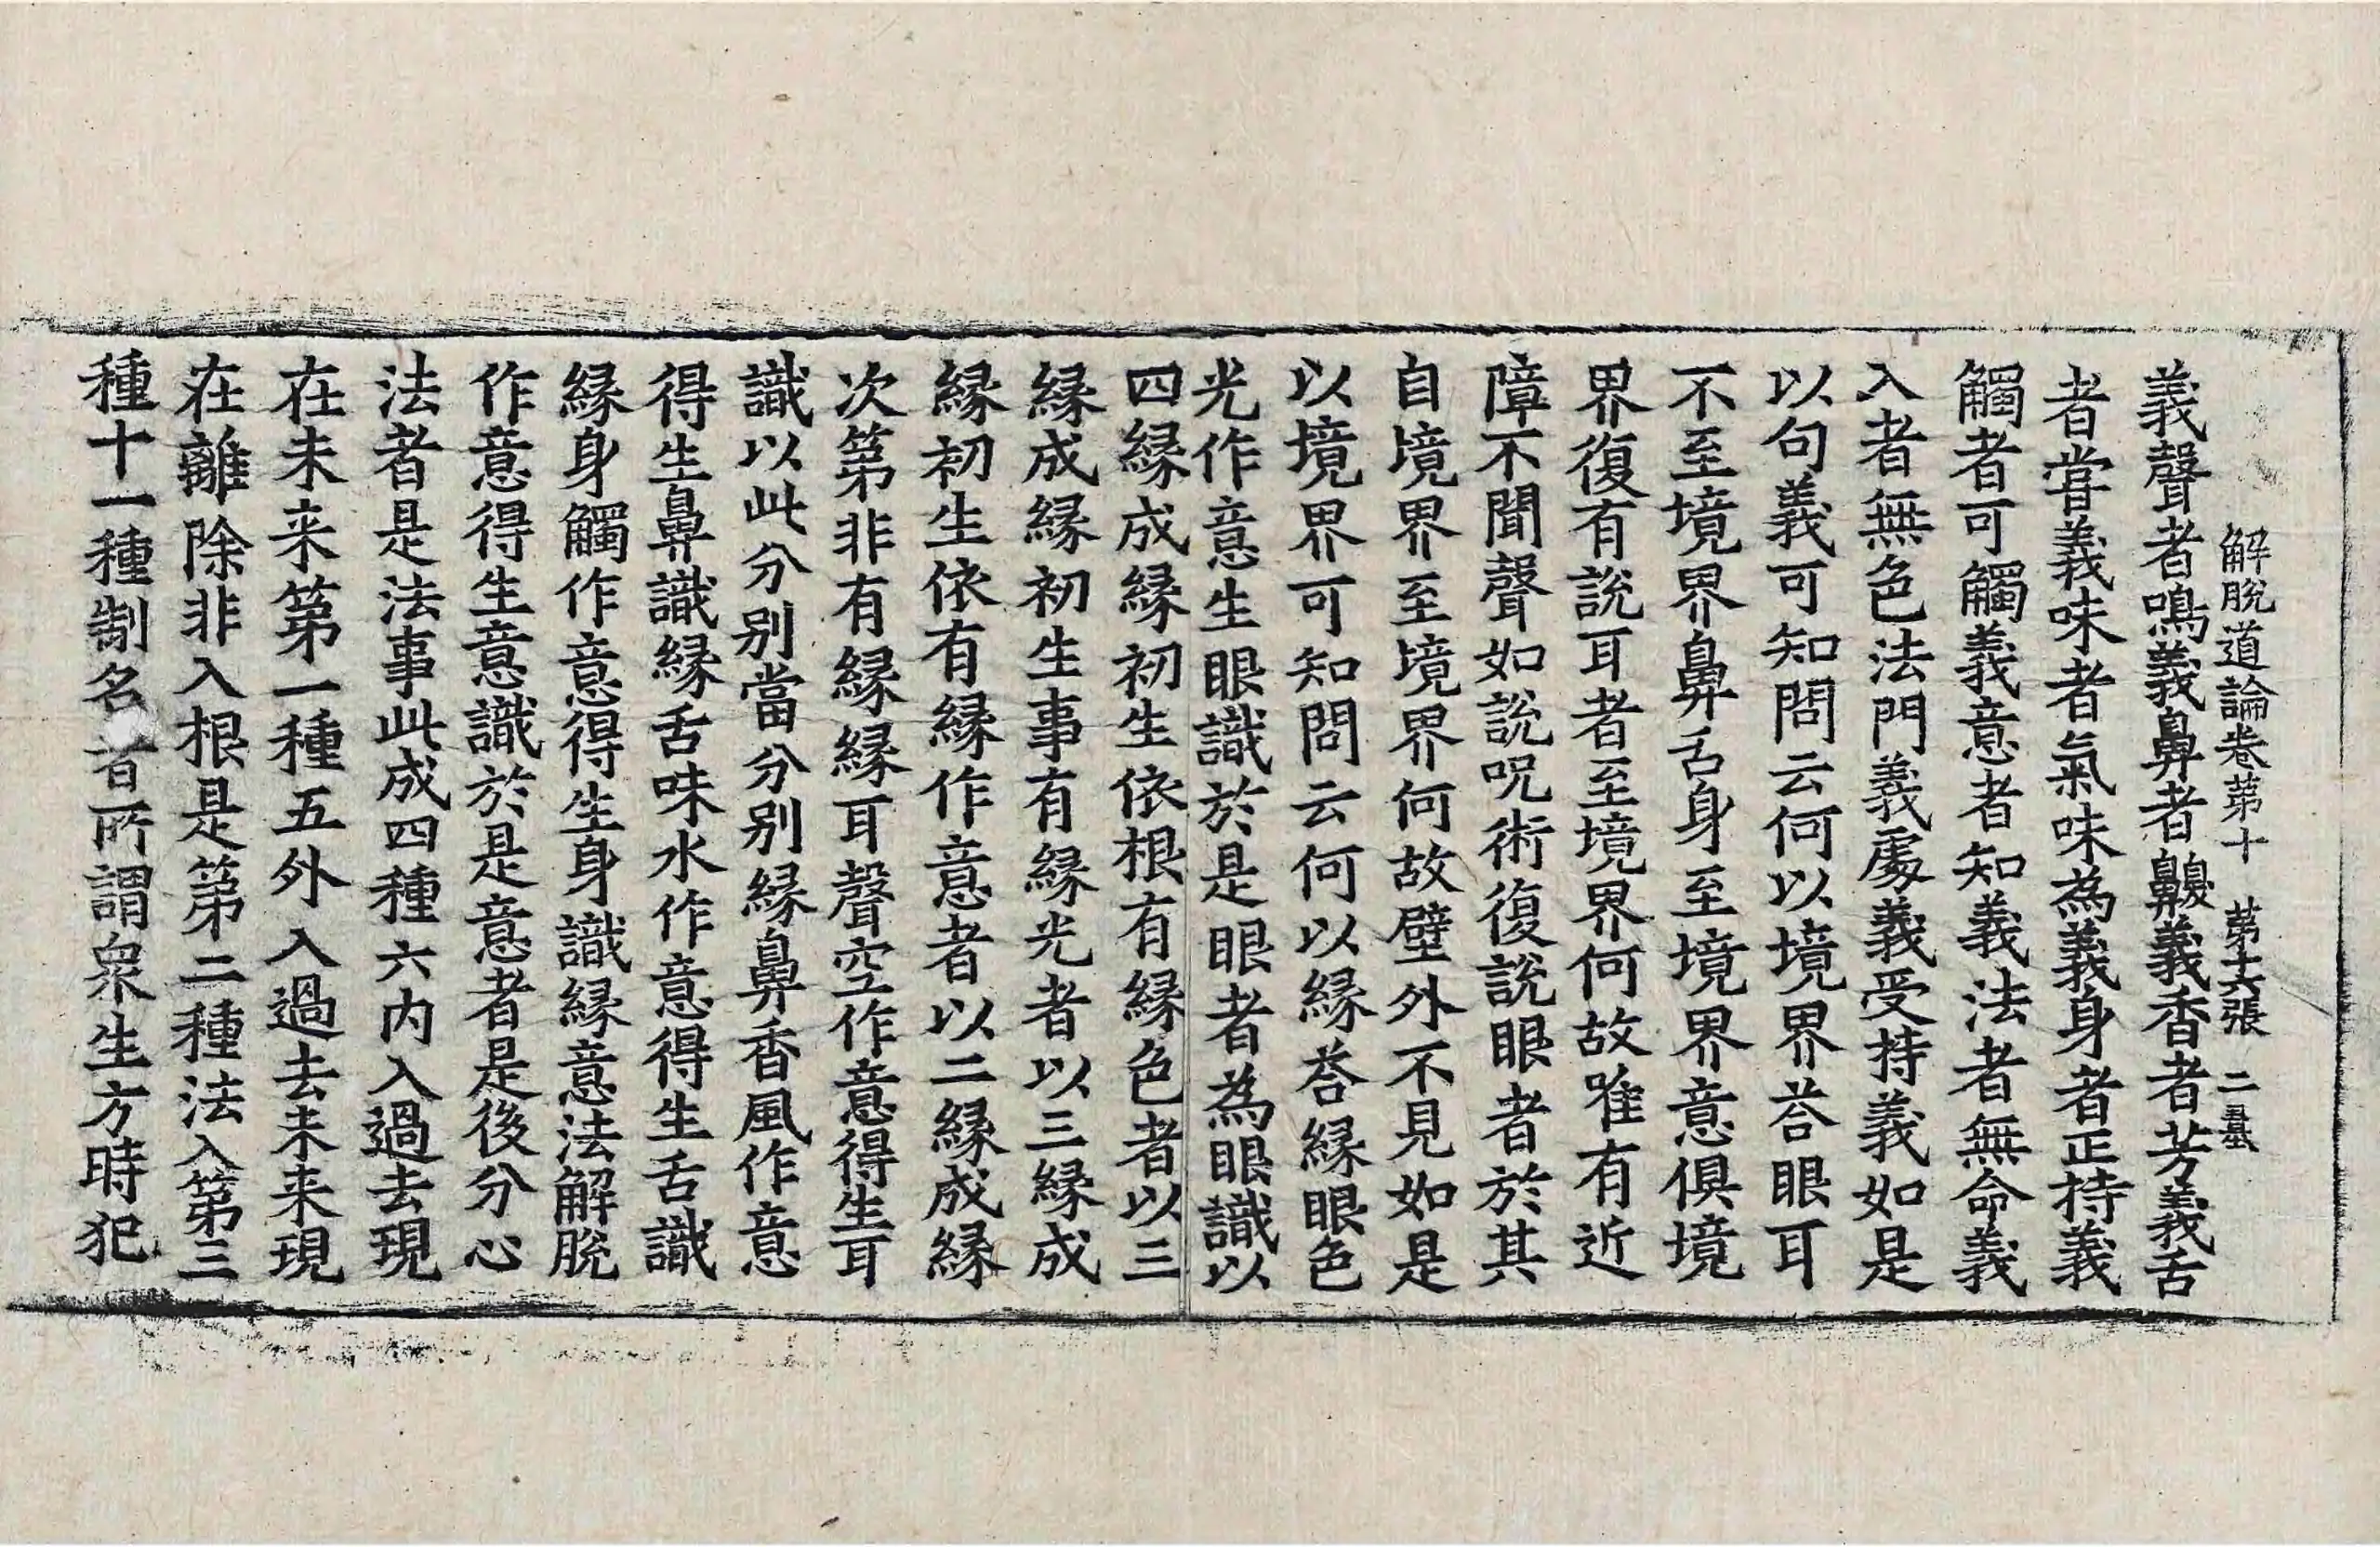 解脫道論卷第十　第十六張　二墓
義聲者鳴義鼻者齅義香者芳義舌
者甞義味者氣味為義身者正持義
觸者可觸義意者知義法者無命義
入者無色法門義處義受持義如是
以句義可知問云何以境界荅眼耳
不至境界鼻舌身至境界意俱境
界復有說耳者至境界何故唯有近
障不聞聲如說呪術復說眼者於其
自境界至境界何故壁外不見如是
以境界可知問云何以緣荅緣眼色
光作意生眼識於是眼者為眼識以
四緣成緣初生依根有緣色者以三
緣成緣初生事有緣光者以三緣成
緣初生依有緣作意者以二緣成緣
次第非有緣緣耳聲空作意得生耳
識以此分別當分別緣鼻香風作意
得生鼻識緣舌味水作意得生舌識
緣身觸作意得生身識緣意法解脫
作意得生意識於是意者是後分心
法者是法事此成四種六内入過去現
在未来第一種五外入過去未来現
在離除非入根是第二種法入第三
種十一種制名者所謂衆生方時犯